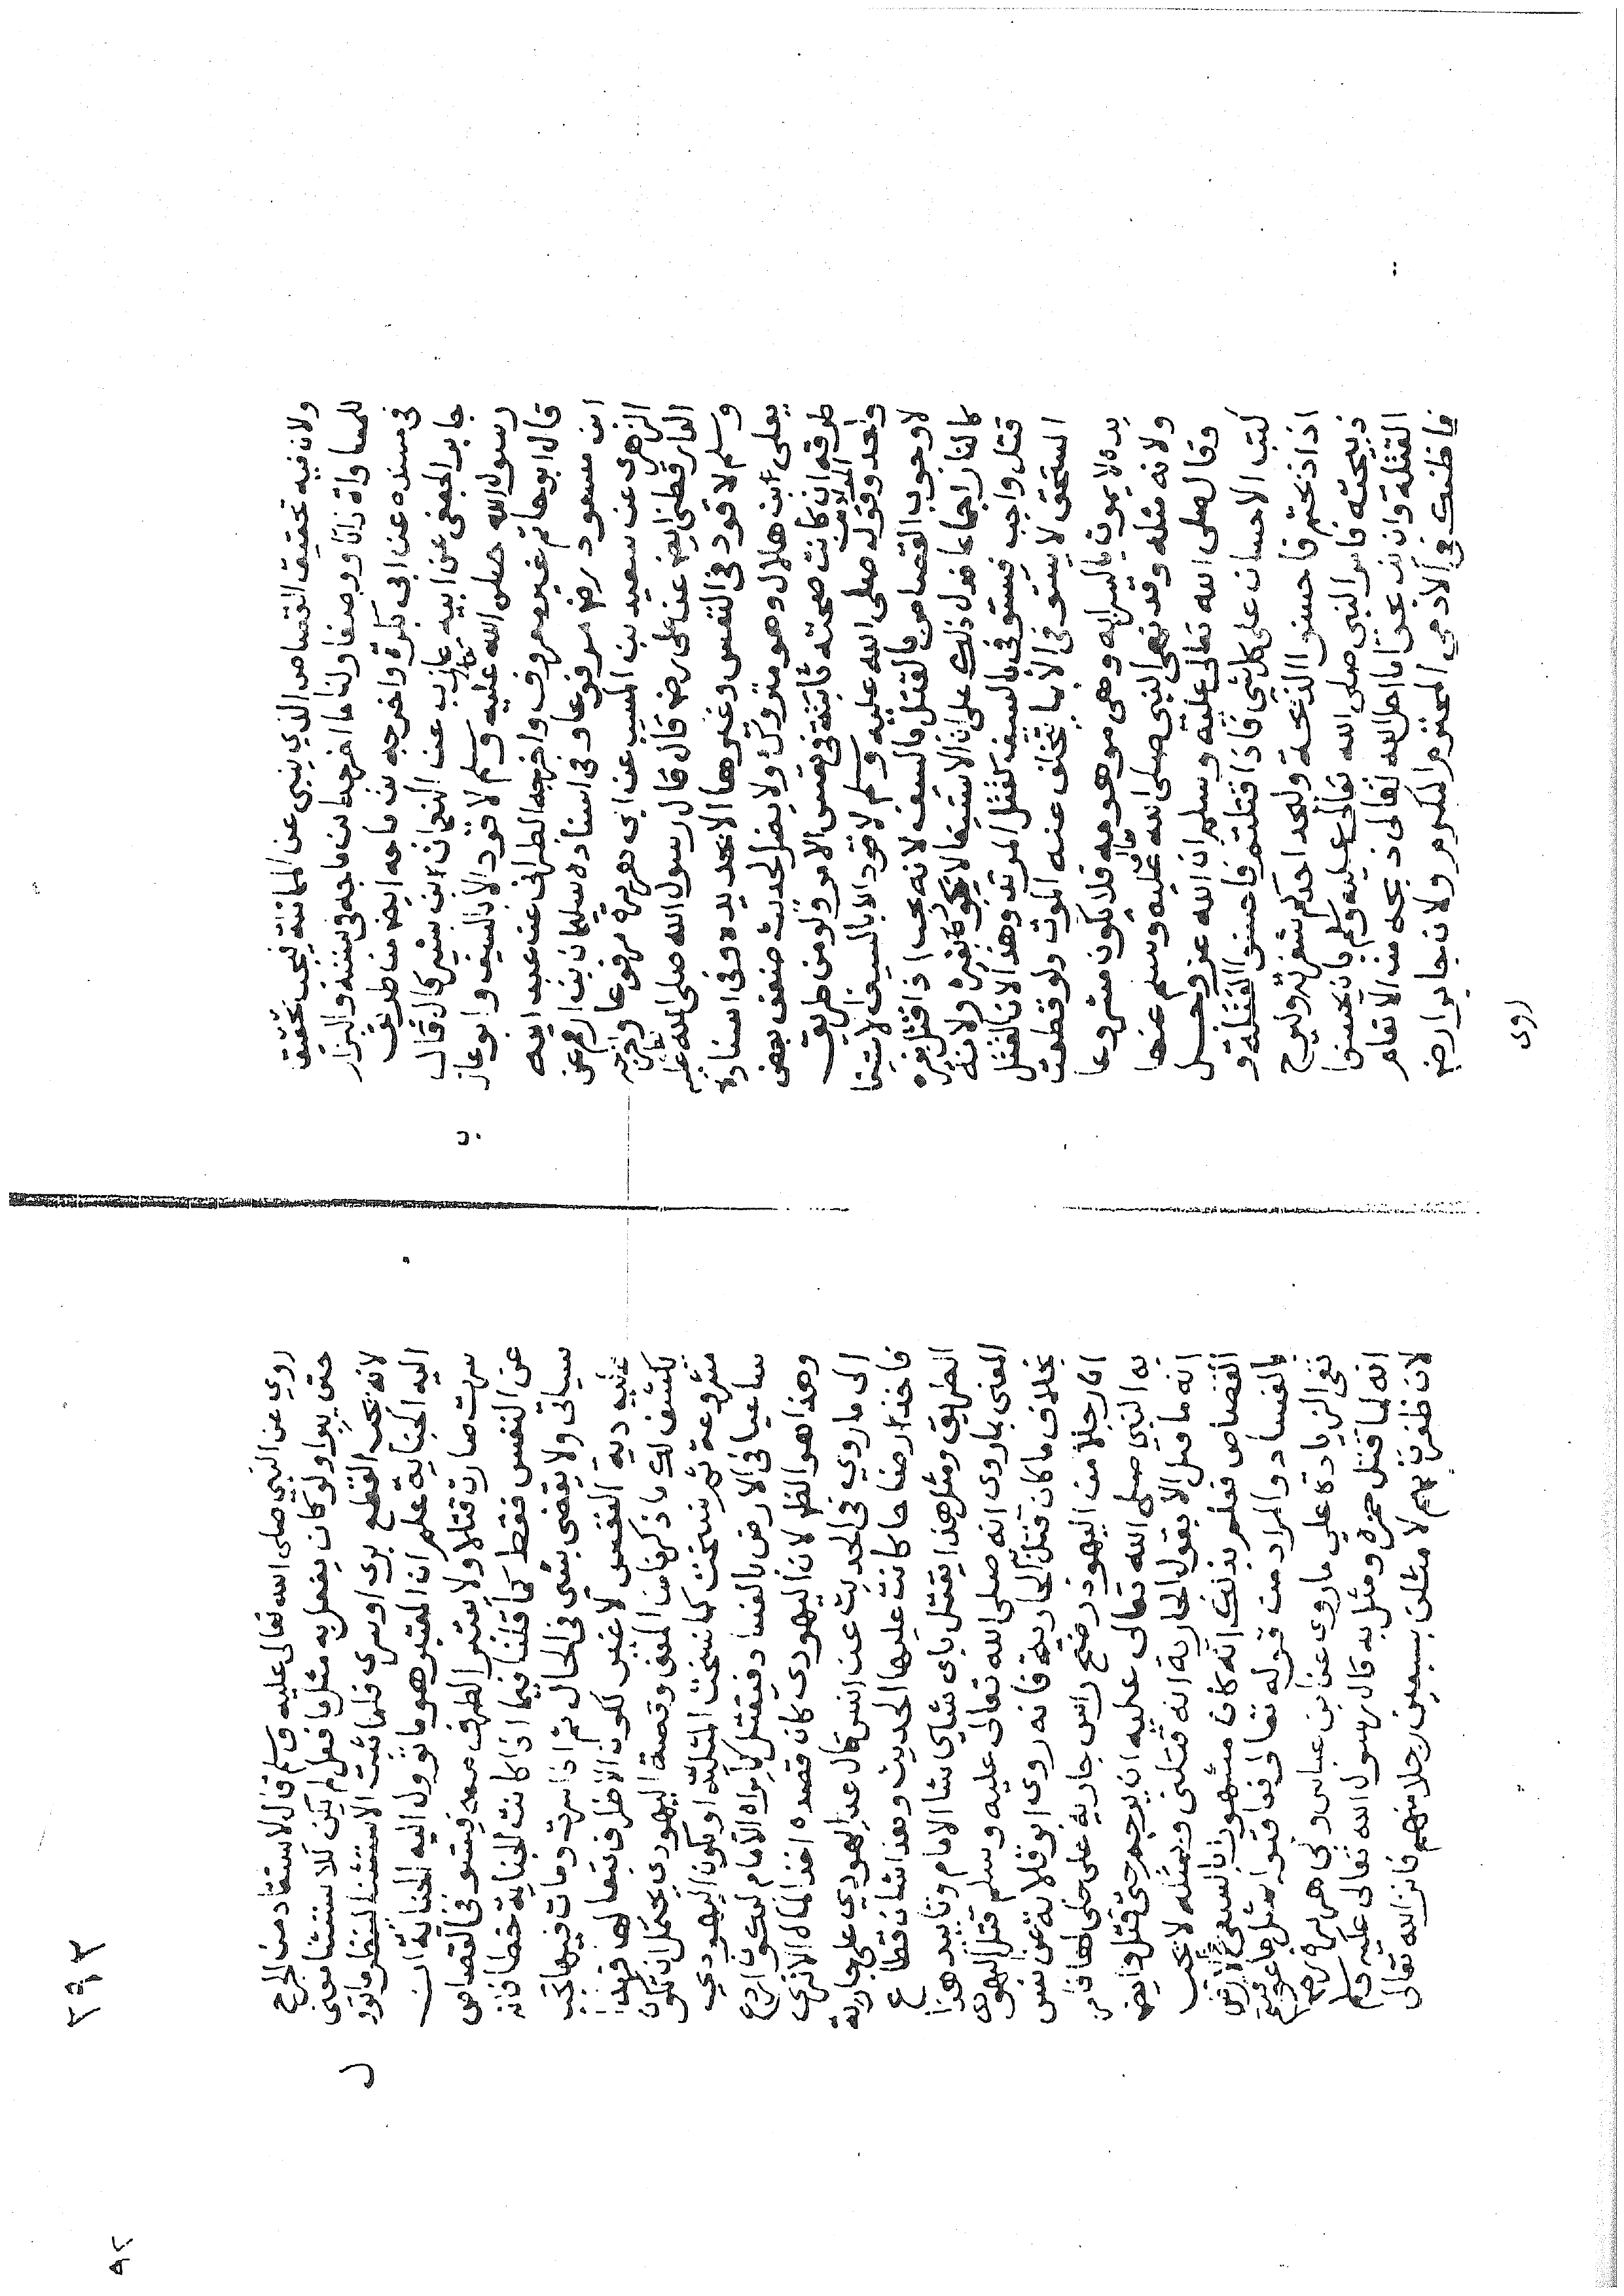 ولان فيه تحقيق القصاص الذي ينبى عن المماثلة فيجب تحقيق
للمساواة ذاتا ووصفا ولنا ما اخرجه بن ماجه فى سننه والبزار
فى مسنده عن ابى بكرة واخرجه بن ماجه ايضا من طريق
جابر الجعفى عن ابيه عازب عن النعمان ابن بشير قال قال
رسول الله صلى الله عليه وسلم لا قود الا بالسيف وابو عازب
قال ابو حاتم غير معروف واخرجه الطبرانى عن عبد الله
ابن مسعود رضه مرفوعا وفى اسناده سليمان بن ارقم عن
الزهرى عن سعيد بن المسيب عن ابى هريرة مرفوعا واخرج
الدارقطنى ايضا عن على رضه قال قال رسول الله صلى الله عليه
وسلم لا قود فى النفس وغيرها الا بحديدة وفى اسناده
يعلى ابن هلال وهو متروك ولا يضر الحديث ضعف بعض
طرقه ان كانت صحته ثابتة فى نفس الامر ولو من طريق
واحد وقوله صلى الله عليه وسلم لا قود الا بالسيف لاستيفا
لا وجوب القصاص بالقتل بالسيف لانه يجب اذا قتل بغيره
كالنار اجماعا فدل ذلك على ان الاستيفا لا يجوز بغيره ولانه
قتل واجب فيستوفى بالسيف كقتل المرتد وهذا لان القتل
المستحق لا يستوفى الا بما يتخلف عنه الموت ولو قطعت
يده لا يموت بالسراية وهى موهومة فلا يكون مشروعا
ولانه مثله وقد نهى النبى صلى الله عليه وسلم عنها
وقال صلى الله تعالى عليه وسلم ان الله عز وجل
كتب الاحسان على كل شى فاذا قتلتم فاحسنوا القتلة و
اذا ذبحتم فاحسنوا الذبحة وليحد احدكم شفرته وليرح
ذبيحته فامر النبى صلى الله تعالى عليه وسلم بان يحسنوا
القتلة وان نذبح ما احل الله تعالى ذبحه من الانعام
فما ظنك فى الادمى المحترم المكرم ولان جابرا رضه
روى
٢٩٣
٩٢
روي عن النبي صلى الله تعالى عليه وسلم قال لا يستقاد من الجرح
حتى يبرا ولو كان يفعل به مثل ما فعل لم يكن للاستثنا معنى
لانه يجب القطع برى او سرى فلما ثبت الاستثنا لينظر ما تؤل
اليه الجناية علم ان المعتبر هو ما تؤول اليه الجناية ان
سرت صارت قتلا ولا يعتبر الطرف معه فيستوفى القصاص
عن النفس فقط كما قلنا فيما اذا كانت الجناية خطا فانه
سياتى ولا يقضى بشى فى الحال ثم اذا سرت ومات فيها تجب
عليه دية النفس لا غير لكون الاطراف تبعا لها فهذا
يكشف لك ما ذكرنا من المعنى وقصة اليهودى يحتمل ان تكون
مشروعة ثم نسخت كما نسخت المثلة او يكون اليهودي
ساعيا فى الارض بالفساد فيقتل كما يراه الامام ليكون اردع
وهذا هو الظاهر لان اليهودي كان قصده اخذ المال الا ترى
الى ما روي فى الحديث عن انس قال عدا يهودي على جارية
فاخذ اوضاحا كانت عليها الحديث وهذا شان قطاع
الطريق ومثل هذا يقتل باى شى شا الامام وتاييد هذا
المعنى بما روى انه صلى الله تعالى عليه وسلم قتل اليهودى
بخلاف ما كان قتل الجارية فانه روى ابو قلابة عن انس
ان رجلا من اليهود رضخ راس جارية على حلى لها فامر
به النبى صلى الله تعالى عليه ان يرجم حتى قتل وايضا
انه ما قتل الا بقول الجارية انه قتلنى وبمثله لا يجب
القصاص فعلم بذلك انه كان مشهورا بالسعى فى الارض
بالفساد والمراد من قوله تعالى فعاقبوا بمثل ما عوقبتم
نفى الزيادة على ما روى عن ابن عباس وابى هريرة رضه
انه لما قتل حمزة ومثل به قال رسول الله تعالى عليه وسلم
لان ظفرت بهم لامثلن بسبعين رجلا منهم فانزل الله تعالى